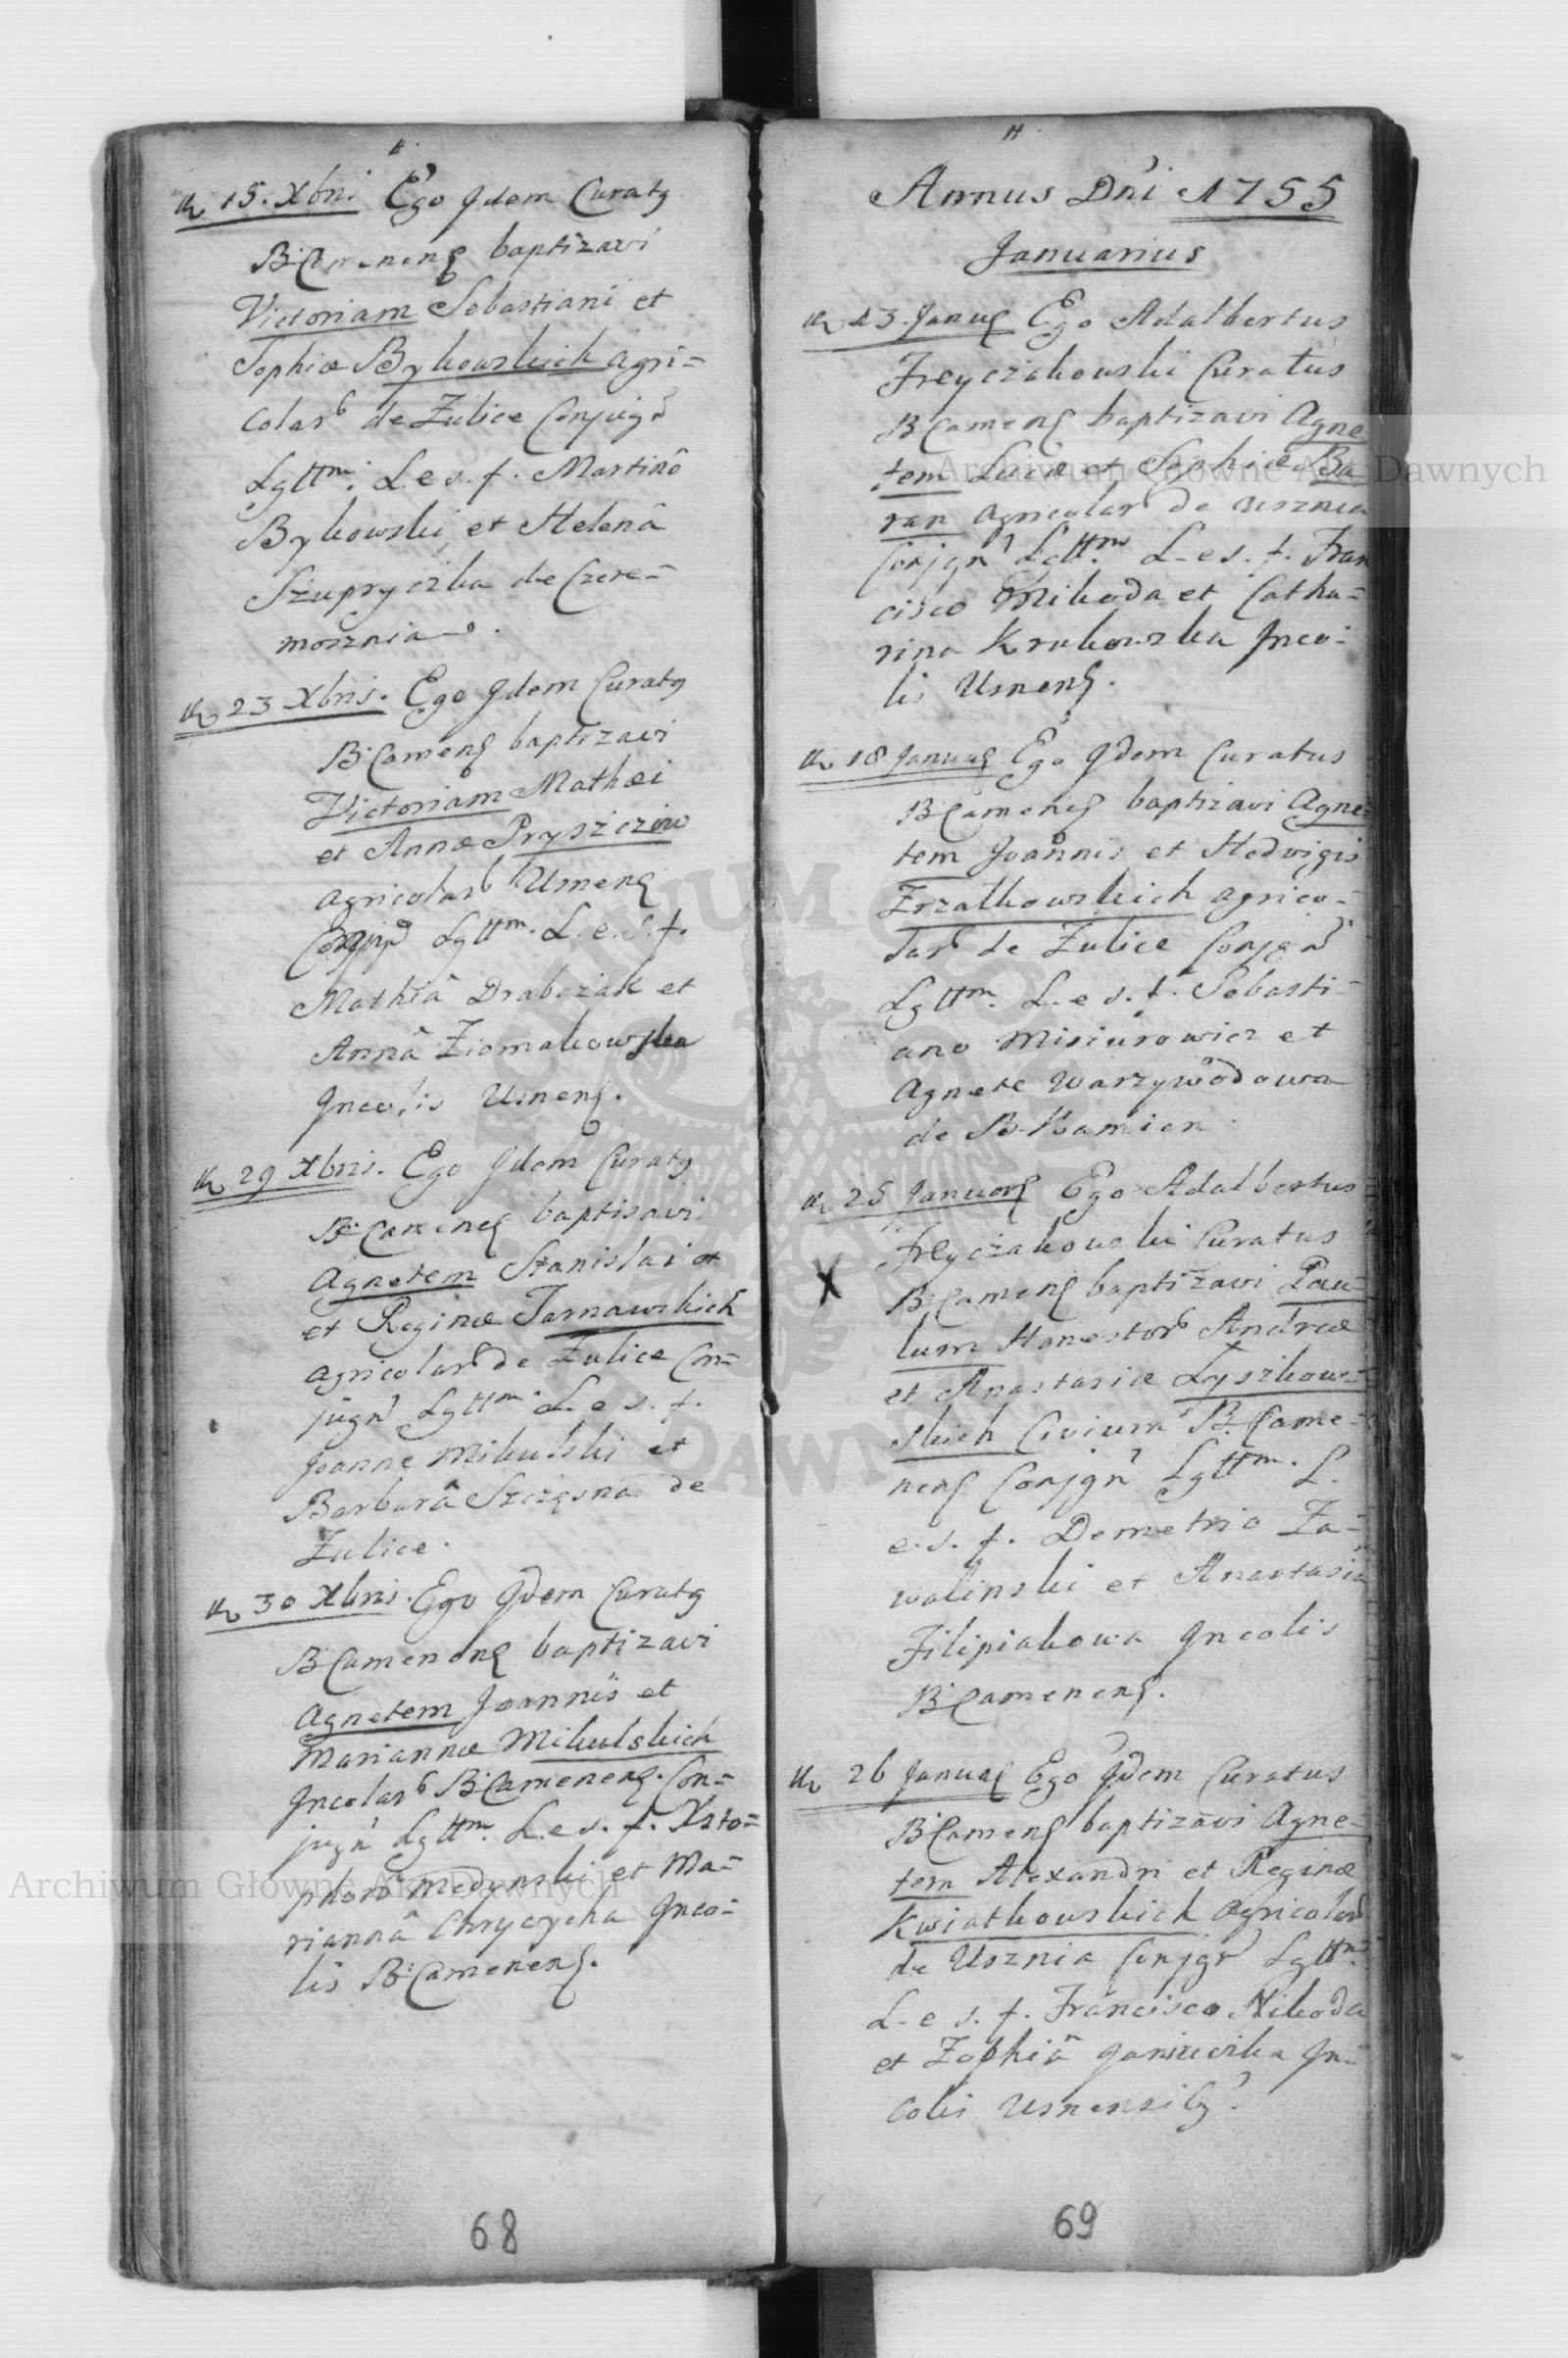 15. Xbri Ego Idem Curatg
B: Camenens baptizavi
Victoriam Sebastiani et
Sophiæ Bykowskich Agri=
colar de Zulice Conjug
Lgttm. L. e s. f. Martinô
Bykowski et Helenâ
Szupryczka de Czere=
mosznia.
23 Xbris. Ego Idem Curatg
B: Camens baptizavi
Victoriam Mathæi
et Annæ Pryszczow
agricolar Usnens
Lgttm. L. e. s. f.
Mathiâ Drabczak et
Annâ Ziomakowska
Incolis Usnens.
29 Xbris. Ego Idem Curatg
B: Camenens baptisavi
Agnetem Stanislai et
et Reginæ Tarnawskich
agricolar de Zulice Con=
jugr Lgttm. L. e s. f.
Joanne Mikulski et
Barbarâ Szczęsna de
Zulice.
30 Xbris. Ego Idem Curatg
B: Camenens baptizavi
Agnetem Joannis et
Mariannæ Mikulskich
Incolar B: Camenens. Con=
jugr Lgttm. L. e s. f. Xsto=
phoro Medynski et Ma=
riannâ Chrycycha Inco=
lis B: Camenens.
68
Annus Dni 1755
Januarius
13. Januar Ego Adalbertus
Freyczakowski Curatus
B Camens baptizavi Agne
tem Lucæ et Sophiæ Ba
ran agricolar de Usznia
Conjgr Lgttm. L. e s. f. Fran
cisco Mikoda et Catha=
rina Krukowska Inco=
lis Usnens.
18 Januar Ego Idem Curatus
B: Camenens baptizavi Agne=
tem Joannis et Hedvigis
Zrzałkowskich agrico=
lar de Zulice Conjgr
Lgttm. L. e s. f. Sebasti=
ano Misiurowicz et
Agnete Warzywodowa
de B. Kamien.
25 Januar Ego Adalbertus
Freyczakowski Curatus
X B: Camens baptizavi Pau=
lum Honestor Andreæ
et Anastasiæ Łyszkow=
skich Civium B: Came=
nens Conjgr Lgttm. L.
e. s. f. Demetrio Za=
walinski et Anastasia
Filipiakowa Incolis
B: Camenens.
26 Januar Ego Idem Curatus
B: Camens baptizavi Agne=
tem Alexandri et Reginæ
Kwiatkowskich Agricolar
de Usznia Conjgr Lgttm.
L. e s. f. Francisco Mikoda
et Zophiâ In=
colis
69
Archiwum Główne Akt Dawnych
Archiwum Główne Akt Dawnych